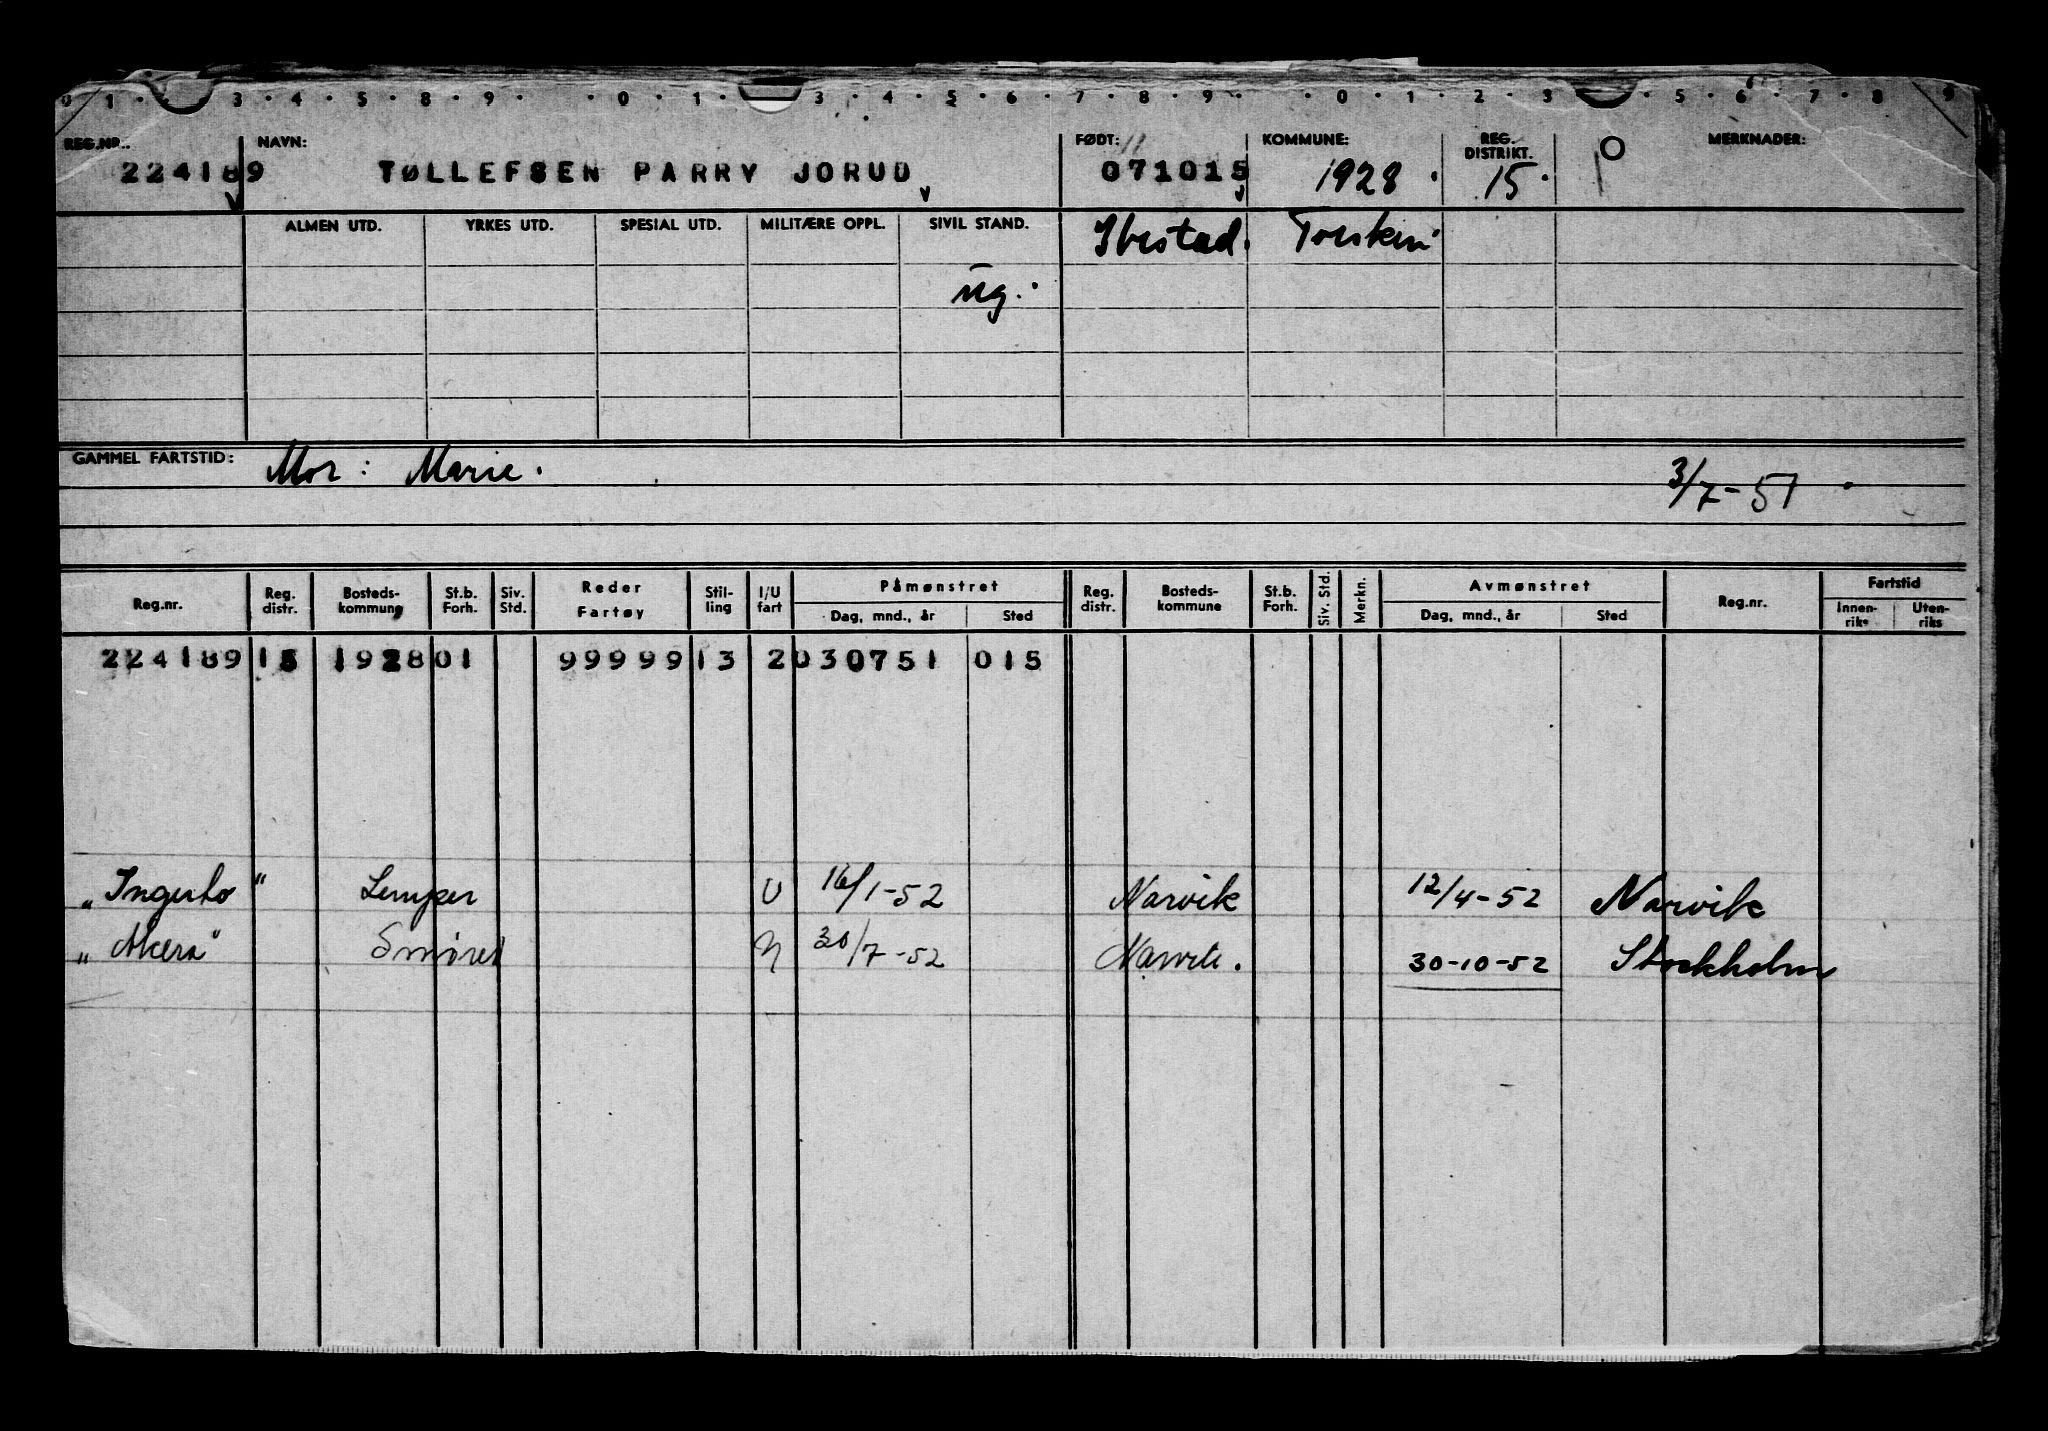 0 1 · 3 · 4 · 5 · 8 · 9 · · 0 · 1 · 3 · 4 · 5 · 6 · 7 · 8 · 9 · · 0 · 1 · 2 · 3 · 5 · 6 · 7 · 8 9
REG.NR.: NAVN: FØDT: 11 KOMMUNE: REG. DISTRIKT. MERKNADER:
224189 TØLLEFSEN PARRY JORUD 071015 1928 · 15 · 10
ALMEN UTD. YRKES UTD. SPESIAL UTD. MILITÆRE OPPL. SIVIL STAND. Ibestad. Torsken
ug.
GAMMEL FARTSTID: Mor : Marie . 3/7-51
Reg.nr. Reg. distr. Bosteds- kommune St.b. Forh. Siv. Std. Reder Fartøy Stil- ling I/U fart Påmønstret Reg. distr. Bosteds- kommune St.b. Forh. Siv. Std. Merkn. Avmønstret Reg.nr. Fartstid
Dag, mnd., år Sted Dag, mnd., år Sted Innen- riks Uten- riks
224189 15 1928 01 99999 13 2 030751 015
„Ingerto" Lemper U 16/1-52 Narvik 12/4-52 Narvik
„Akera" Smører 30/7-52 Narvik. 30-10-52 Stockholm